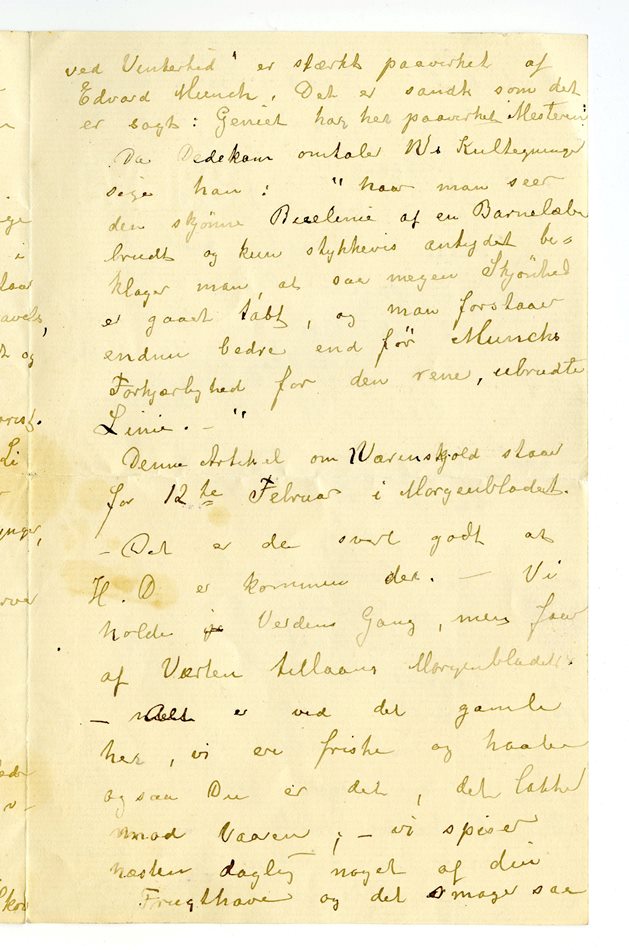 ved Vintertid" er stærkt paavirket af
Edvard Munch. Det er sandt som det
er sagt: Geniet har her paavirket Mesteren"
Da Dedekam omtaler Ws Kultegninger
sige han: "naar man seer
den skjønne Buelinie af en Barnelæbe
brudt og kun stykkevis antydet be=
klager man, at saa megen Skjønhed
er gaaet tabt, og man forstaaer
endnu bedre end før Munchs
Forkjærlighed for den rene, ubrudte
Linie. – "
Denne Artikel om Wærenskjold staar
for 12te Februar i Morgenbladet.
– Det er da svært godt at
H. D. er kommen der. – Vi
holde Verdens Gang, men faar
af Værten tillaans Morgenbladet.
– Alt er ved det gamle
her, vi ere friske og haaber
ogsaa Du er det, det lakker
mod Vaaren; – vi spiser
næsten daglig noget af din
Frugthave og det smager saa